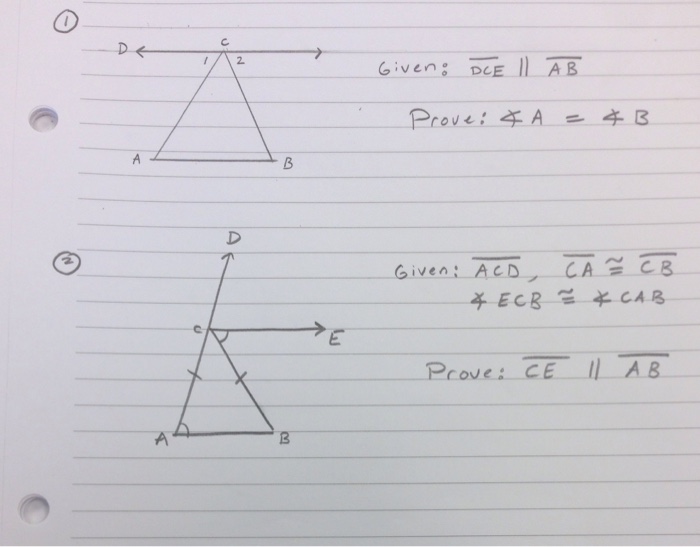 ①
D C
1 2
A B
Given: DCE || AB
Prove: ∡ A = ∡ B
②
D
C E
A B
Given: ACD, CA ≅ CB
∡ ECB ≅ ∡ CAB
Prove: CE || AB